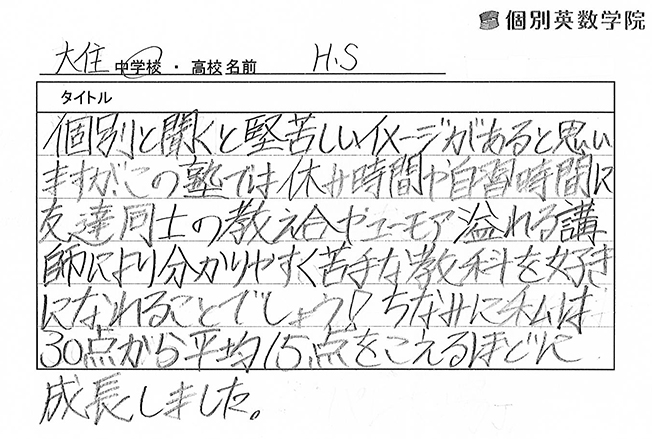 個別英数学院
大住 中学校 ・ 高校 名前 H.S
タイトル
個別と聞くと堅苦しいイメージがあると思い
ますがこの塾では休み時間や自習時間に
友達同士の教え合やユーモア溢れる講
師により分かりやすく苦手な教科を好き
になれることでしょう!ちなみに私は
30点から平均15点をこえるほどに
成長しました。